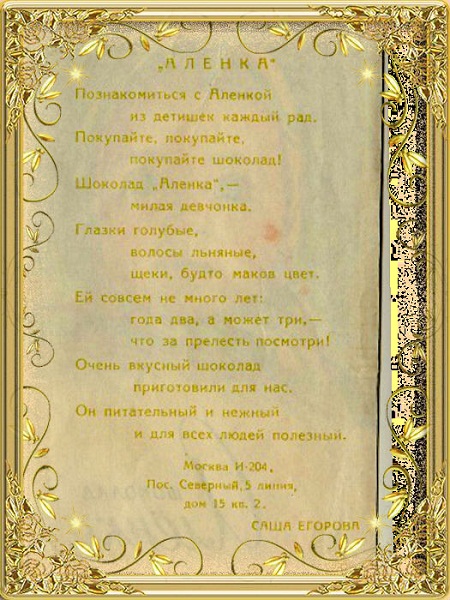 „АЛЕНКА“
Познакомиться с Аленкой
из детишек каждый рад.
Покупайте, покупайте,
покупайте шоколад!
Шоколад „Аленка“,—
милая девчонка.
Глазки голубые,
волосы льняные,
щеки, будто маков цвет.
Ей совсем не много лет:
года два, а может три,—
что за прелесть посмотри!
Очень вкусный шоколад
приготовили для нас.
Он питательный и нежный
и для всех людей полезный.
Москва И-204,
Пос. Северный, 5 линия,
дом 15 кв. 2.
САША ЕГОРОВА